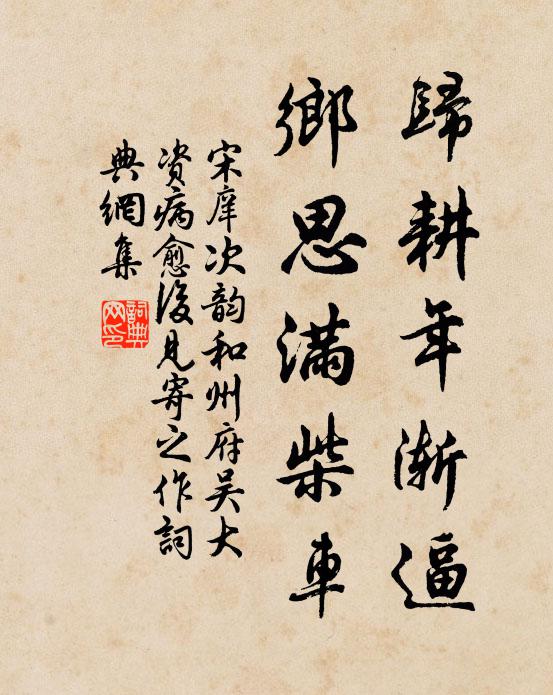 歸耕年漸逼
鄉思滿柴車
宋庠次韵和州府吴大
資病愈後見寄之作詞
典網集
詞典
网印